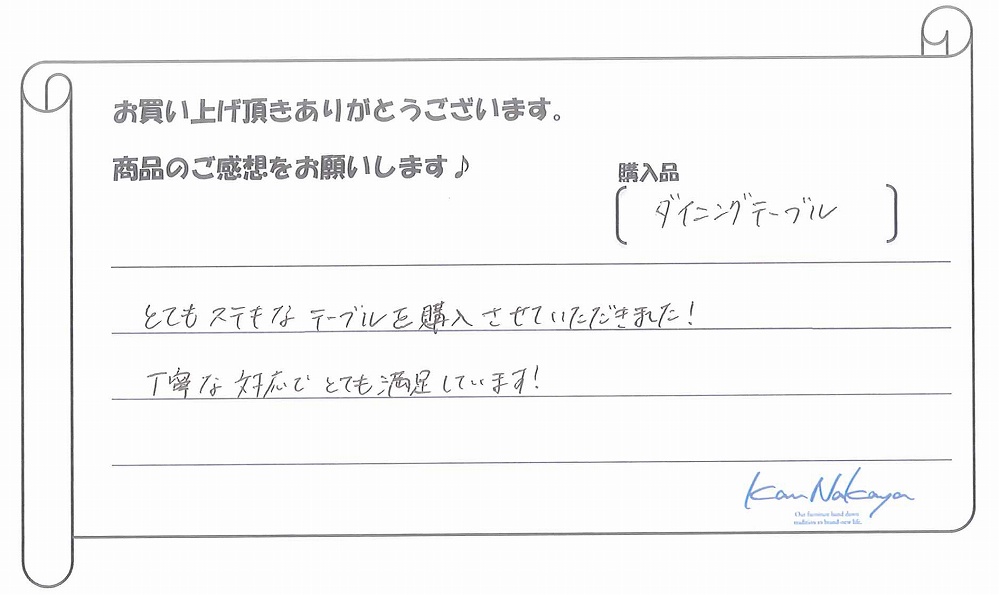 お買い上げ頂きありがとうございます。
商品のご感想をお願いします♪
購入品
ダイニングテーブル
とてもステキな テーブルを購入させていただきました!
丁寧な対応で とても満足しています!
Kan Nakaya
Our furniture hand down
tradition as brand-new life.